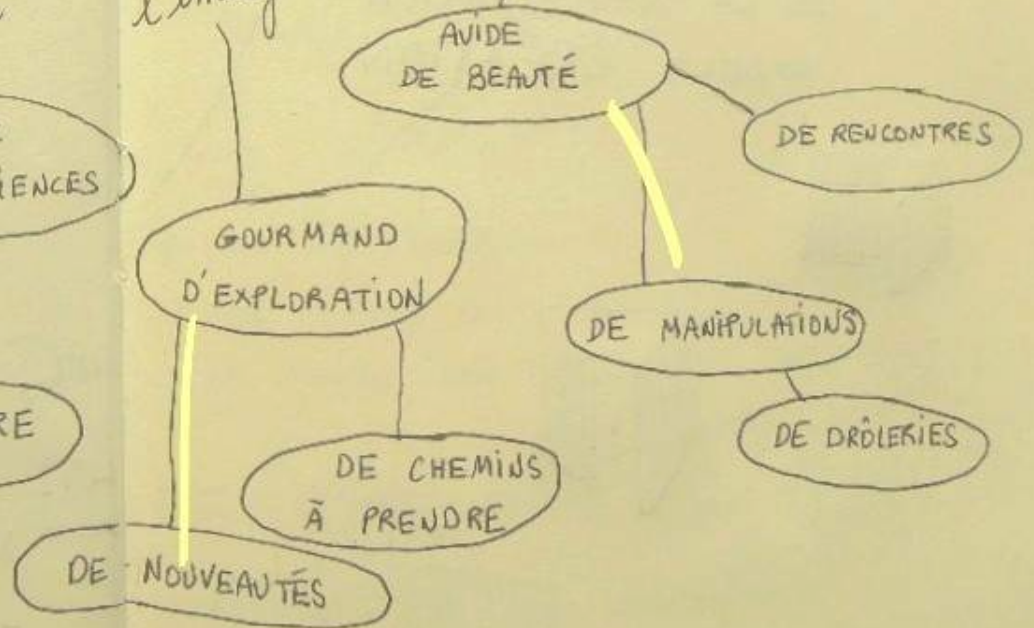 AVIDE
DE BEAUTÉ
DE RENCONTRES
GOURMAND
D'EXPLORATION
DE MANIPULATIONS
DE DRÔLERIES
DE CHEMINS
À PRENDRE
DE NOUVEAUTÉS